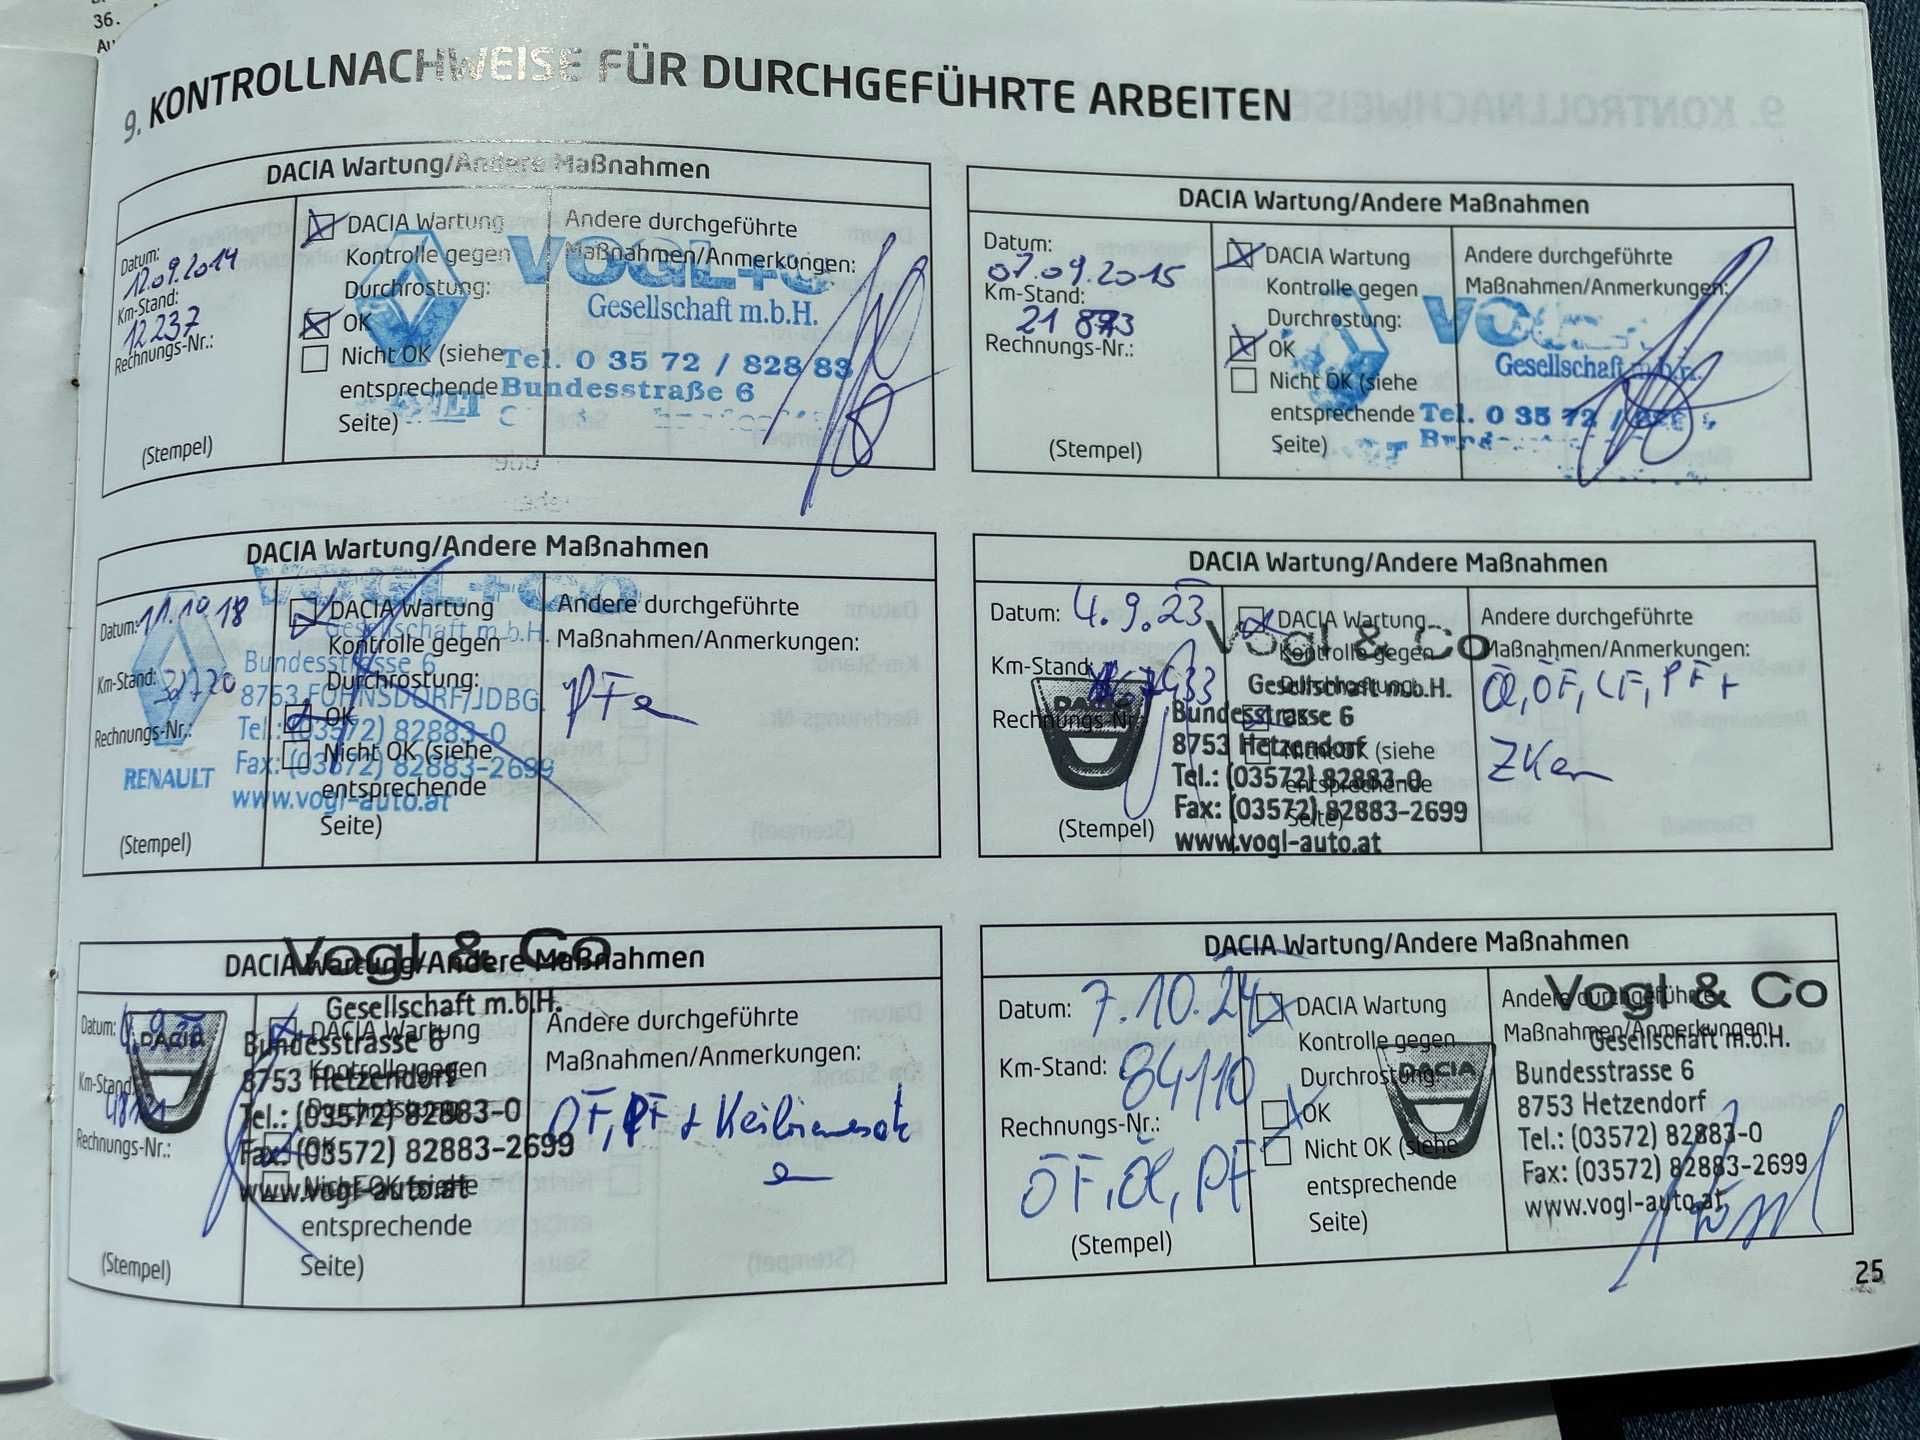 36.
9. KONTROLLNACHWEISE FÜR DURCHGEFÜHRTE ARBEITEN
DACIA Wartung/Andere Maßnahmen
Datum:
12.09.2014
Km-Stand:
12 237
Rechnungs-Nr.:
(Stempel)
DACIA Wartung
Kontrolle gegen
Durchrostung:
OK
Nicht OK (siehe
entsprechende
Seite)
Andere durchgeführte
Maßnahmen/Anmerkungen:
VOGL+CO
Gesellschaft m.b.H.
Tel. 0 35 72 / 828 83
Bundesstraße 6
DACIA Wartung/Andere Maßnahmen
Datum:
07.09.2015
Km-Stand:
Rechnungs-Nr.:
(Stempel)
DACIA Wartung
Kontrolle gegen
Durchrostung:
OK
Nicht OK (siehe
entsprechende
Seite)
Andere durchgeführte
Maßnahmen/Anmerkungen:
Gesellschaft m.b.H.
Tel. 0 35 72 /
DACIA Wartung/Andere Maßnahmen
Datum: 11.10.18
Km-Stand:
Rechnungs-Nr.:
(Stempel)
DACIA Wartung
Kontrolle gegen
Durchrostung:
OK
Nicht OK (siehe
entsprechende
Seite)
Andere durchgeführte
Maßnahmen/Anmerkungen:
VOGL+CO
Gesellschaft m.b.H.
Bundesstrasse 6
8753 FOHNSDORF/JDBG.
Tel.: (03572) 82883-0
Fax: (03572) 82883-2699
www.vogl-auto.at
RENAULT
DACIA Wartung/Andere Maßnahmen
Datum: 4.9.23
Km-Stand:
Rechnungs-Nr.:
(Stempel)
DACIA Wartung
Kontrolle gegen
Durchrostung:
OK
Nicht OK (siehe
entsprechende
Seite)
Andere durchgeführte
Maßnahmen/Anmerkungen:
Öl, ÖF, LF, PF +
Vogl & Co
Gesellschaft m.b.H.
Bundesstrasse 6
8753 Hetzendorf
Tel.: (03572) 82883-0
Fax: (03572) 82883-2699
www.vogl-auto.at
DACIA
DACIA Wartung/Andere Maßnahmen
Datum:
Km-Stand:
Rechnungs-Nr.:
(Stempel)
DACIA Wartung
Kontrolle gegen
Durchrostung:
OK
Nicht OK (siehe
entsprechende
Seite)
Andere durchgeführte
Maßnahmen/Anmerkungen:
ÖF, PF +
Vogl & Co
Gesellschaft m.b.H.
Bundesstrasse 6
8753 Hetzendorf
Tel.: (03572) 82883-0
Fax: (03572) 82883-2699
www.vogl-auto.at
DACIA
DACIA Wartung/Andere Maßnahmen
Datum: 7.10.24
Km-Stand: 84110
Rechnungs-Nr.:
ÖF, Öl, PF
(Stempel)
DACIA Wartung
Kontrolle gegen
Durchrostung:
OK
Nicht OK (siehe
entsprechende
Seite)
Andere durchgeführte
Maßnahmen/Anmerkungen:
Vogl & Co
Gesellschaft m.b.H.
Bundesstrasse 6
8753 Hetzendorf
Tel.: (03572) 82883-0
Fax: (03572) 82883-2699
www.vogl-auto.at
DACIA
25